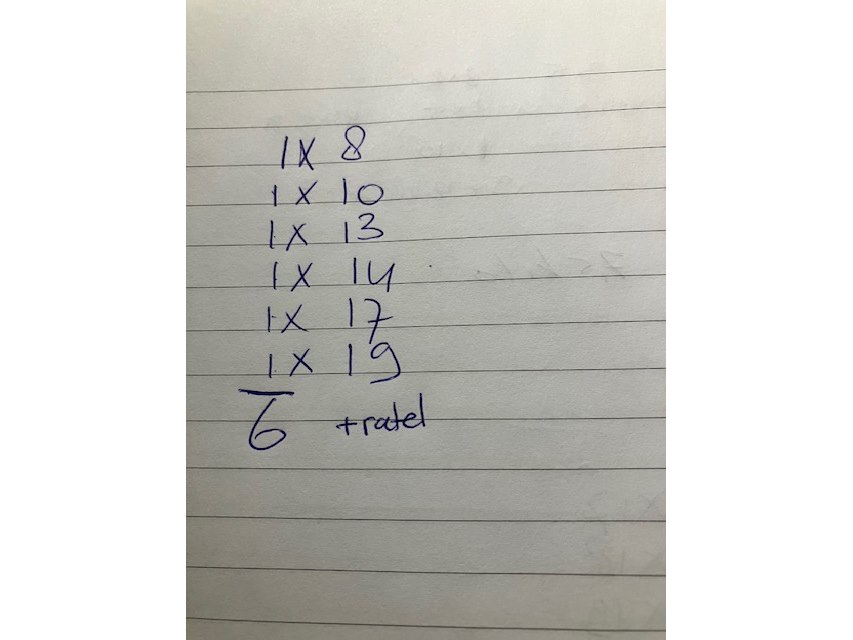 1x 8
1 x 10
1x 13
1 x 14
1x 17
1 x 19
6 +ratel